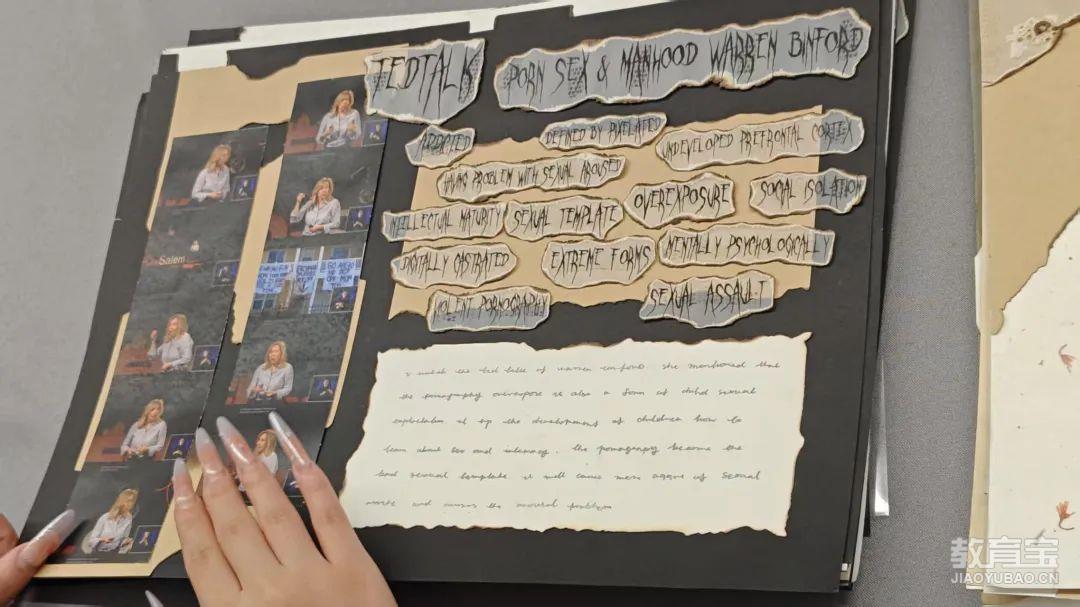 TEDTALK
PORN SEX & MANHOOD WARREN BINFORD
ADDICTED
DEFINED BY PIXELATED
UNDEVELOPED PREFRONTAL CORTEX
HAVING PROBLEM WITH SEXUAL AROUSED
OVEREXPOSURE
SOCIAL ISOLATION
INTELLECTUAL MATURITY
SEXUAL TEMPLATE
DIGITALLY CASTRATED
EXTREME FORMS
MENTALLY PSYCHOLOGICALLY
VIOLENT PORNOGRAPHY
SEXUAL ASSAULT
Salem
I watch the ted talk of warren binford. she mentioned that
the pornography overexpose is also a form of child sexual
exploitation it the development of children how to
learn about sex and intimacy. the pornography become the
sexual template. it will cause more of sexual
and the
教育宝
JIAOYUBAO.CN